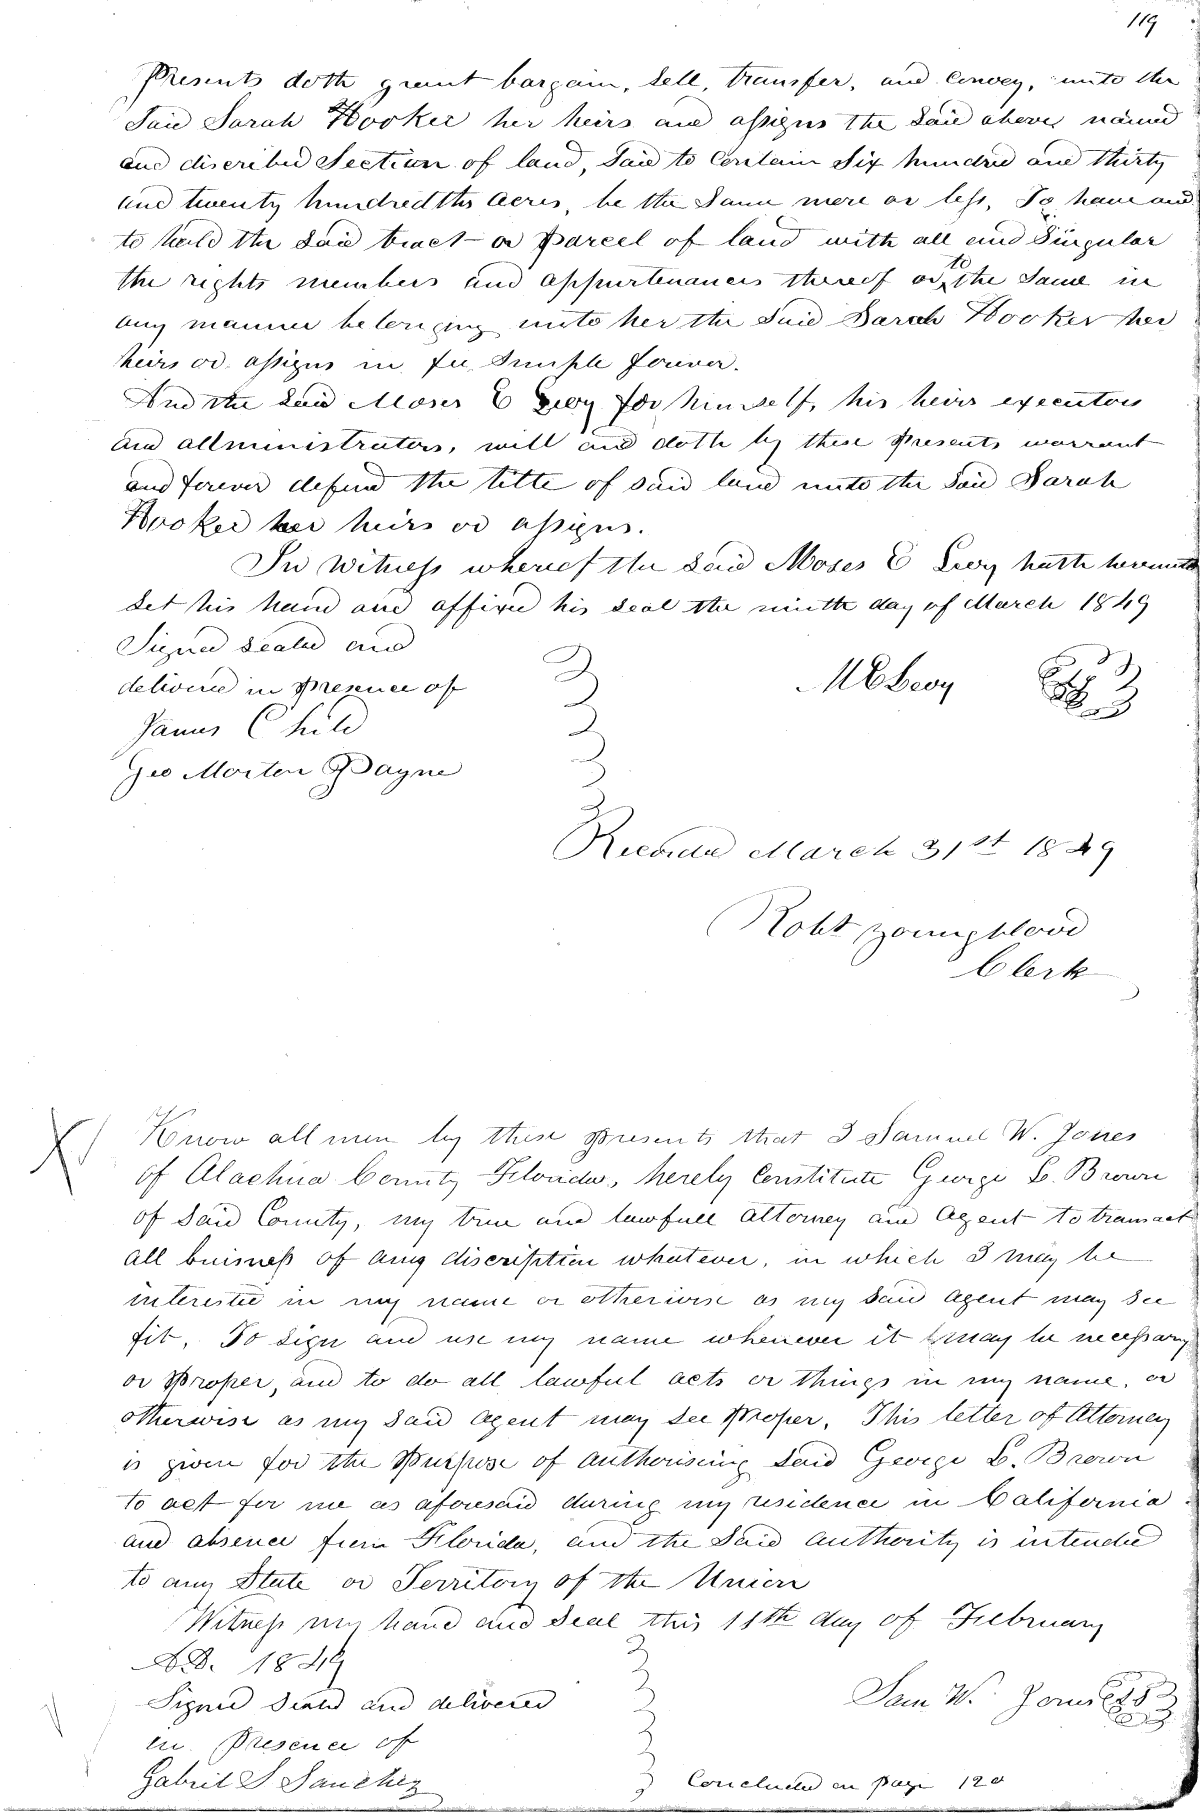 119
Presents doth grant bargain, Sell, transfer, and Convey, unto the
Said Sarah Hooker her heirs and assigns the Said above named
and discribed Section of land, Said to Contain Six hundred and thirty
and twenty hundredths acres, be the Same more or less, To have and
to hold the Said tract or parcel of land with all and Singular
the rights members and appurtenances thereof or to the Same in
any manner belonging unto her the Said Sarah Hooker her
heirs or assigns in fee Simple forever.
And the Said Moses E Levy for himself, his heirs executors
and adlministrators, will and doth by these presents warrant
and forever defend the title of said land unto the Said Sarah
Hooker her heirs or assigns.
In Witness whereof the Said Moses E Levy hath hereunto
Set his hand and affixed his seal the ninth day of March 1849
Signed sealed and
delivered in presence of
M E Levy
James Child
Geo Morton Payne
Recorded March 31st 1849
Robt Youngblood
Clerk
Know all men by these presents that I Samuel W. Jones
of Alachua County Florida, hereby Constitute George L. Brown
of Said County, my true and lawfull attorney and Agent to transact
all buisness of any discription whatever, in which I may be
interested in my name or otherwise as my Said agent may See
fit. To Sign and use my name whenever it may be necessary
or Proper, and to do all lawful acts or things in my name, or
otherwise as my Said agent may See Proper. This letter of Attorney
is given for the Purpose of authorising Said George L. Brown
to act for me as aforesaid during my residence in California
and absence from Florida, and the Said authority is intended
to any State or Territory of the Union
Witness my hand and Seal this 11th day of February
A.D. 1849
Signed Seald and delivered
Sam W. Jones
in Presence of
Gabriel S Sanchez
Concluded on page 120